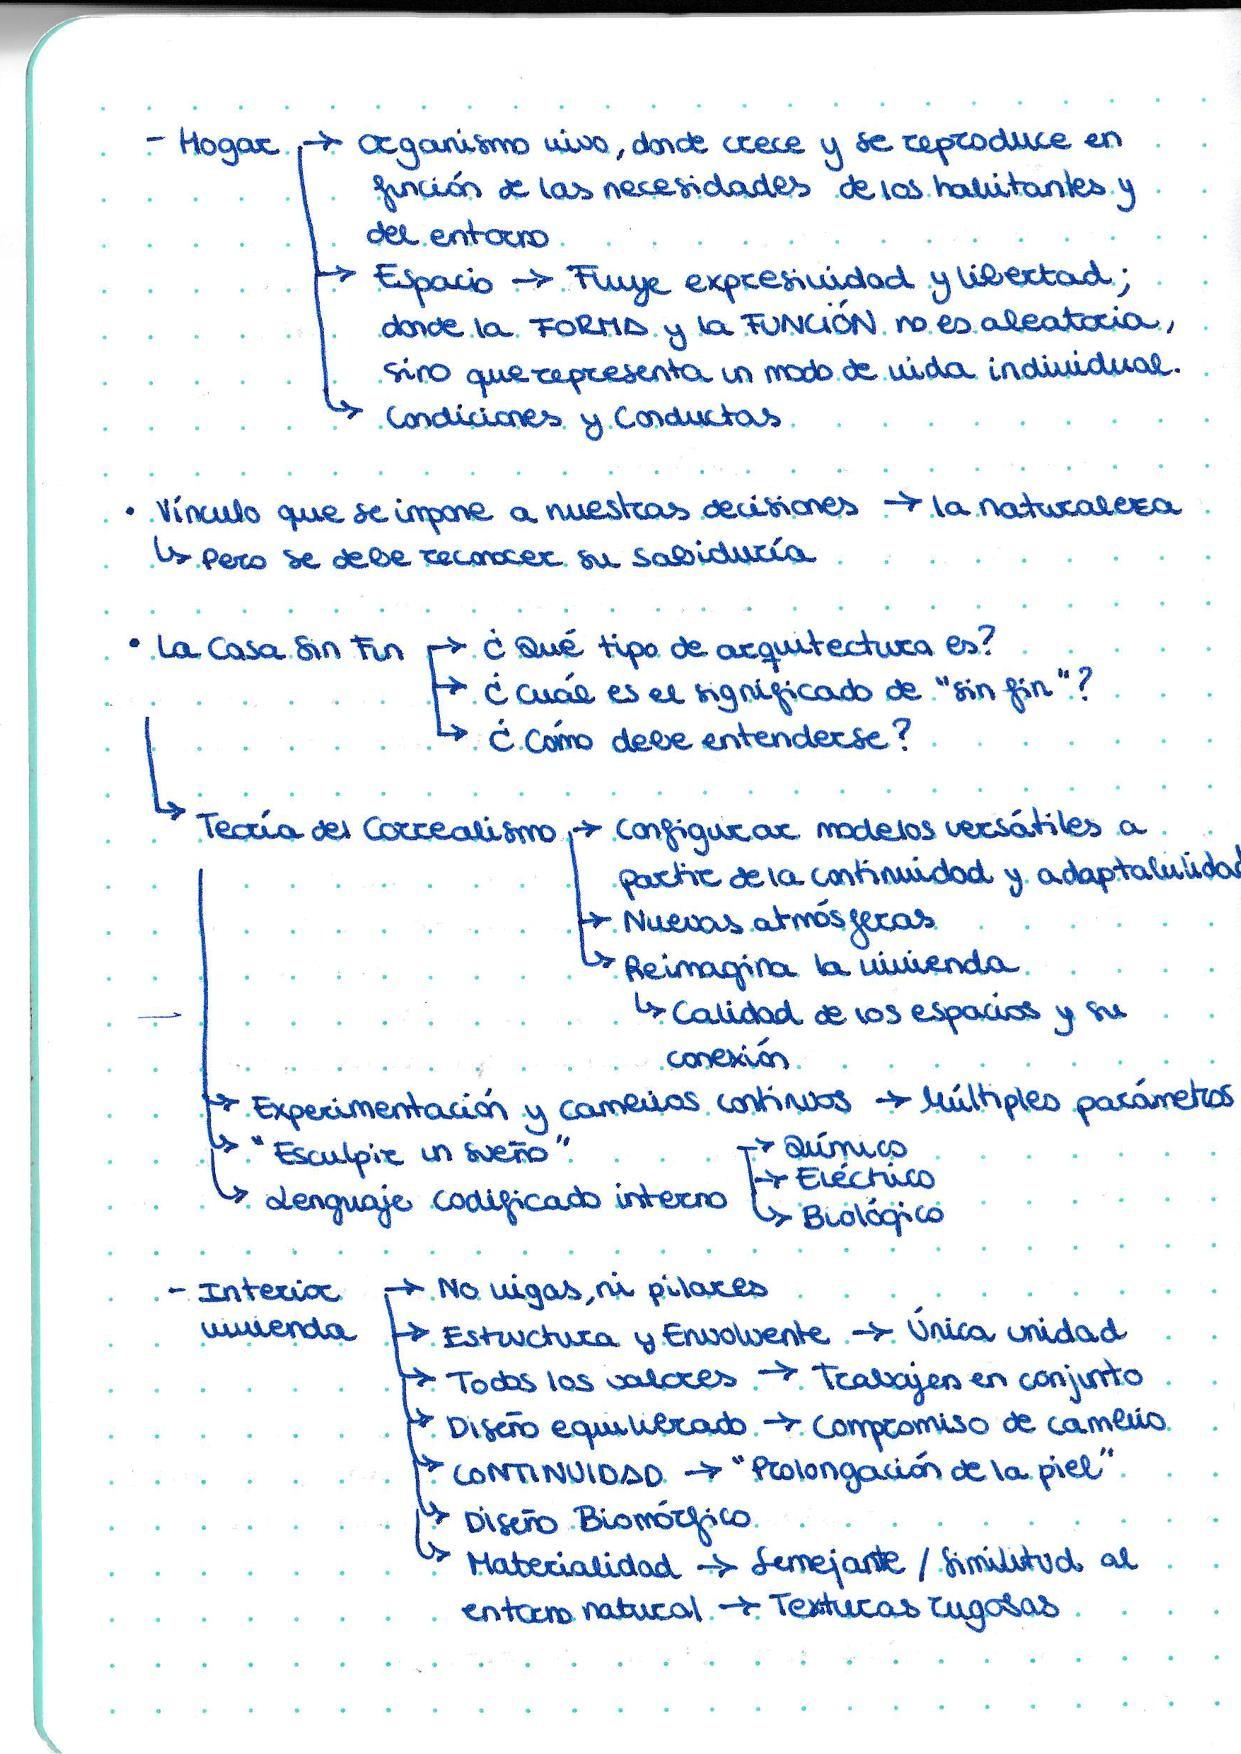 - Hogar → Organismo vivo, donde crece y se reproduce en
función de las necesidades de los habitantes y
del entorno
→ Espacio → Fluye expresividad y libertad;
donde la FORMA y la FUNCIÓN no es aleatoria,
sino que representa un modo de vida individual.
↳ Condiciones y Conductas
• Vínculo que se impone a nuestras decisiones → la naturaleza
↳ Pero se debe reconocer su sabiduría
• La Casa Sin Fin → ¿Qué tipo de arquitectura es?
→ ¿Cuál es el significado de "sin fin"?
↳ ¿Cómo debe entenderse?
↳ Teoría del Correalismo → Configurar modelos versátiles a
partir de la continuidad y adaptabilidad
→ Nuevas atmósferas
↳ Reimagina la vivienda
↳ Calidad de los espacios y su
conexión
→ Experimentación y cambios continuos → Múltiples parámetros
↳ "Esculpir un sueño" → Químico
→ Eléctrico
↳ Lenguaje codificado interno
↳ Biológico
- Interior → No vigas, ni pilares
vivienda → Estructura y Envolvente → Única unidad
→ Todos los valores → Trabajen en conjunto
→ Diseño equilibrado → Compromiso de cambio
→ CONTINUIDAD → "Prolongación de la piel"
↳ Diseño Biomórfico
↳ Materialidad → Semejante / Similitud al
entorno natural → Texturas rugosas